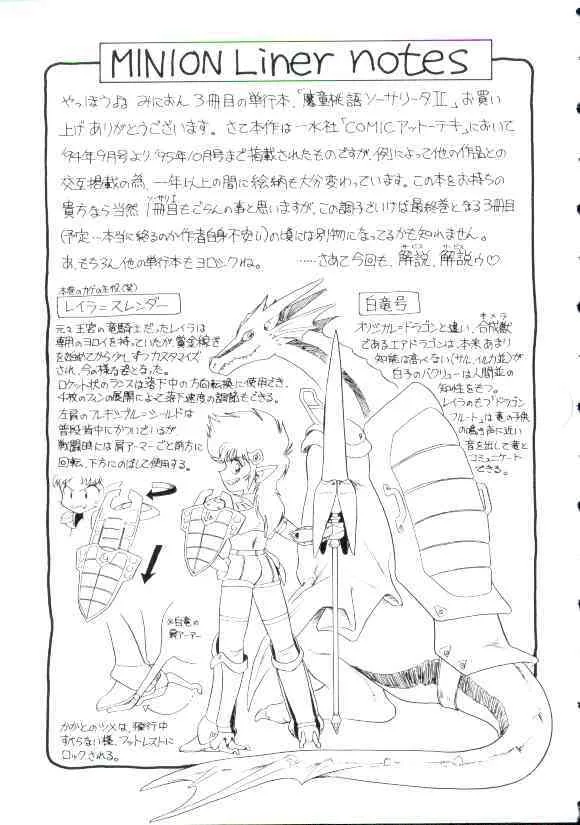 MINION Liner notes
やっほうよ みにおん3冊目の単行本、「魔童桃語ソーサリータⅡ」、お買い
上げありがとうございます。さて本作は一水社「COMICアットーテキ」において
'94年9月号より'95年10月号まで掲載されたものですが、例によって他の作品との
交互掲載の為、一年以上の間に絵柄も大分変わっています。この本をお持ちの
貴方なら当然1冊目もごらんの事と思いますが、この調子でいけば最終巻となる3冊目
(予定…本当に終るのか作者自身不安い)の頃には別物になってるかも知れません。
あ、もちろん、他の単行本もヨロシクね。 ……さあて今回も、解説、解説ゥ♡
本巻のカゲの主役(笑)
レイラ=スレンダー
元々王宮の竜騎士だったレイラは
専用のヨロイを持っていたが、賞金稼ぎ
を始めてから少しずつカスタマイズ
され、今の様な姿となった。
ロケット状のランスは落下中の方向転換に使用でき、
4枚のフィンの展開によって落下速度の調節もできる。
左肩のフレキシブル=シールドは
普段背中にかついでいるが
戦闘時には肩アーマーごと前方に
回転、下方にのばして使用する。
白竜号
オリジナル=ドラゴンと違い、合成獣
キメラ
であるエアドラゴンは、本来あまり
知能は高くない(サル、イルカ並)が
白子のパクリューは人間並の
知性をもつ。
レイラのもつ「ドラゴン
フルート」は竜の子供
の鳴き声に近い
音を出して竜と
コミュニケート
できる。
※白竜の
肩アーマー
かかとのツメは、飛行中
すべらない様、フットレストに
ロックされる。